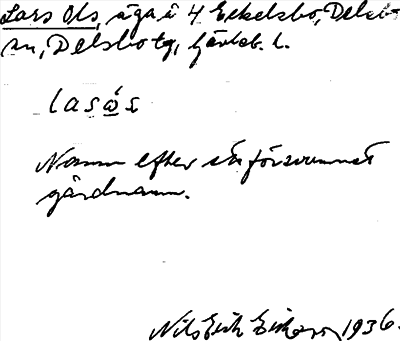 Lars Ols, äga å 4 Eckelsbo, Delsbo
sn, Delsbo tg, Gävleb. l.
lasós
Namn efter ett försvunnet
gårdnamn.
Nils Erik Eriksson 1936.